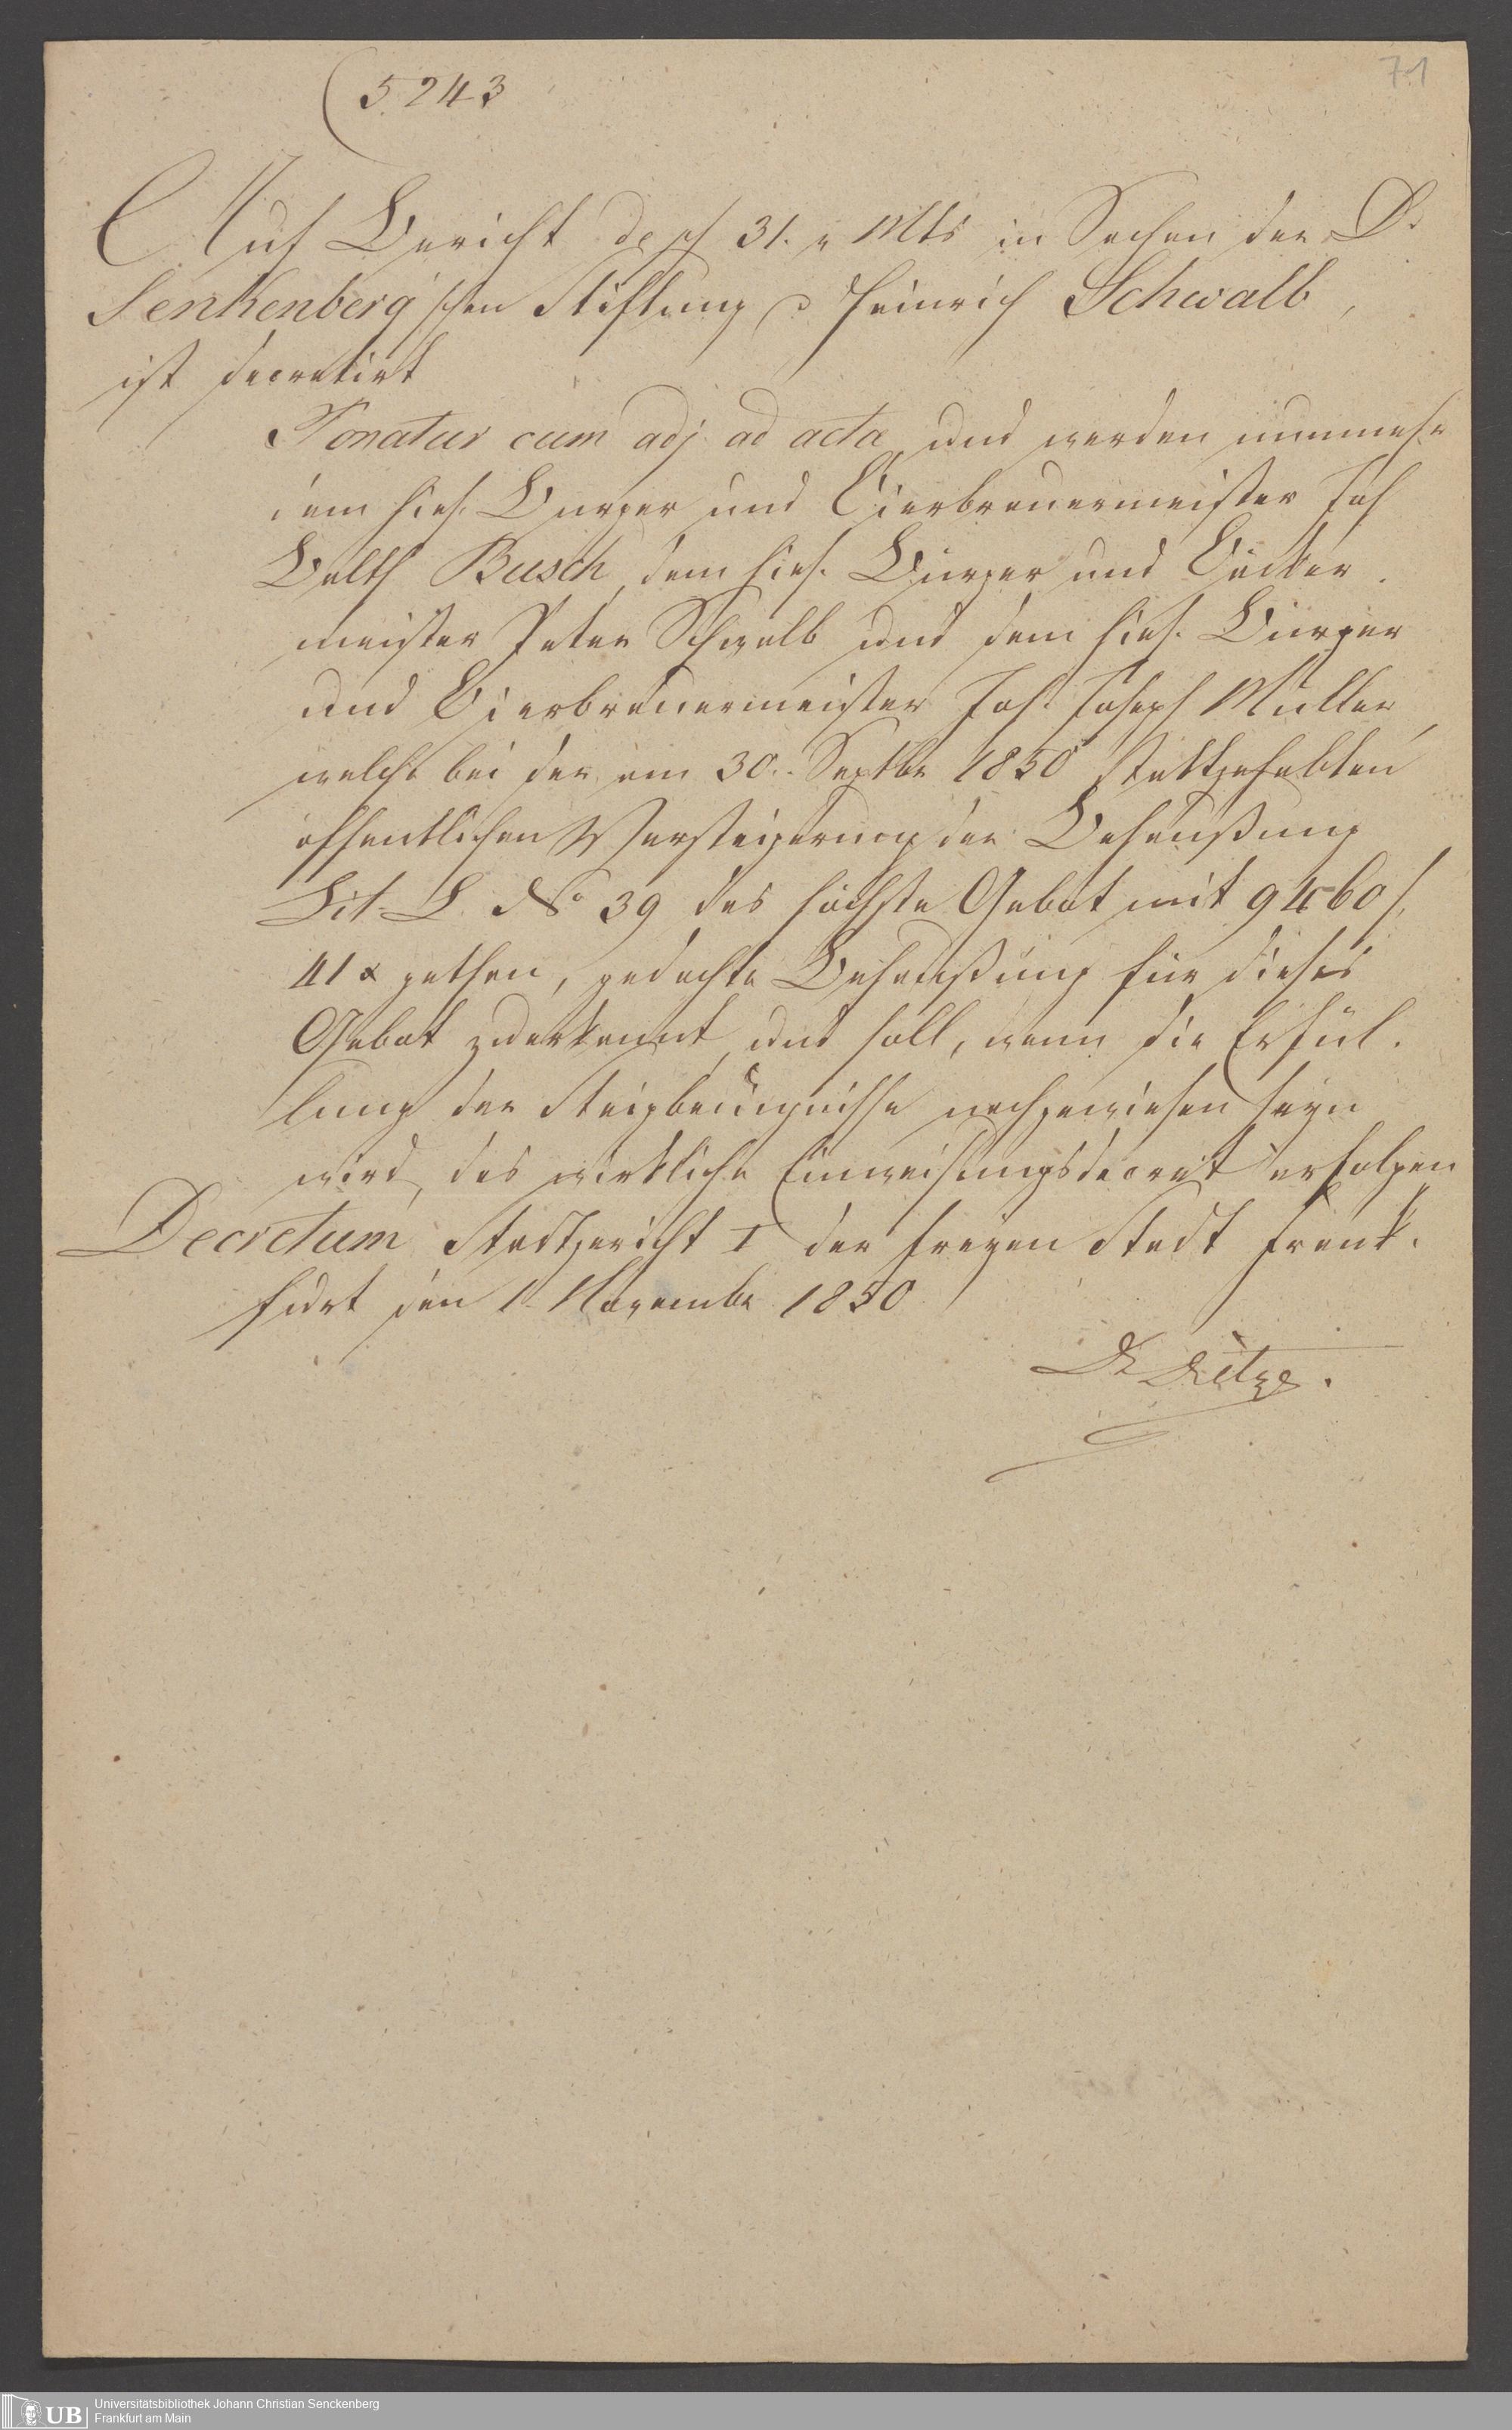 5243
71
Auf Bericht de ps 31. v Mts in Sachen der Dr
Senkenberg'schen Stiftung c/ Heinrich Schwalb,
ist decretirt
Ponatur cum adj. ad acta, und werden nunmehr
dem hies. Burger und Bierbrauermeister Joh
Balth Busch, dem hies. Bürger und Bäcker-
meister Peter Schwalb und dem hies. Bürger
und Bierbrauermeister Joh. Joseph Müller,
welche bei der am 30. Septbr 1850 stattgehabten
öffentlichen Versteigerung der Behaußung
Lit. L. No 39 das höchste Gebot mit 9460 f.
41 x gethan, gedachte Behaußung für dieses
Gebot zuerkannt, und soll, wenn die Erfül-
lung der Steigbedingnisse nachgewiesen seyn
wird, das wirkliche Einweisungsdecret erfolgen
Decretum Stadtgericht I der freyen Stadt Frank-
furt den 1 Novembr 1850
Universitätsbibliothek Johann Christian Senckenberg
Frankfurt am Main
UB